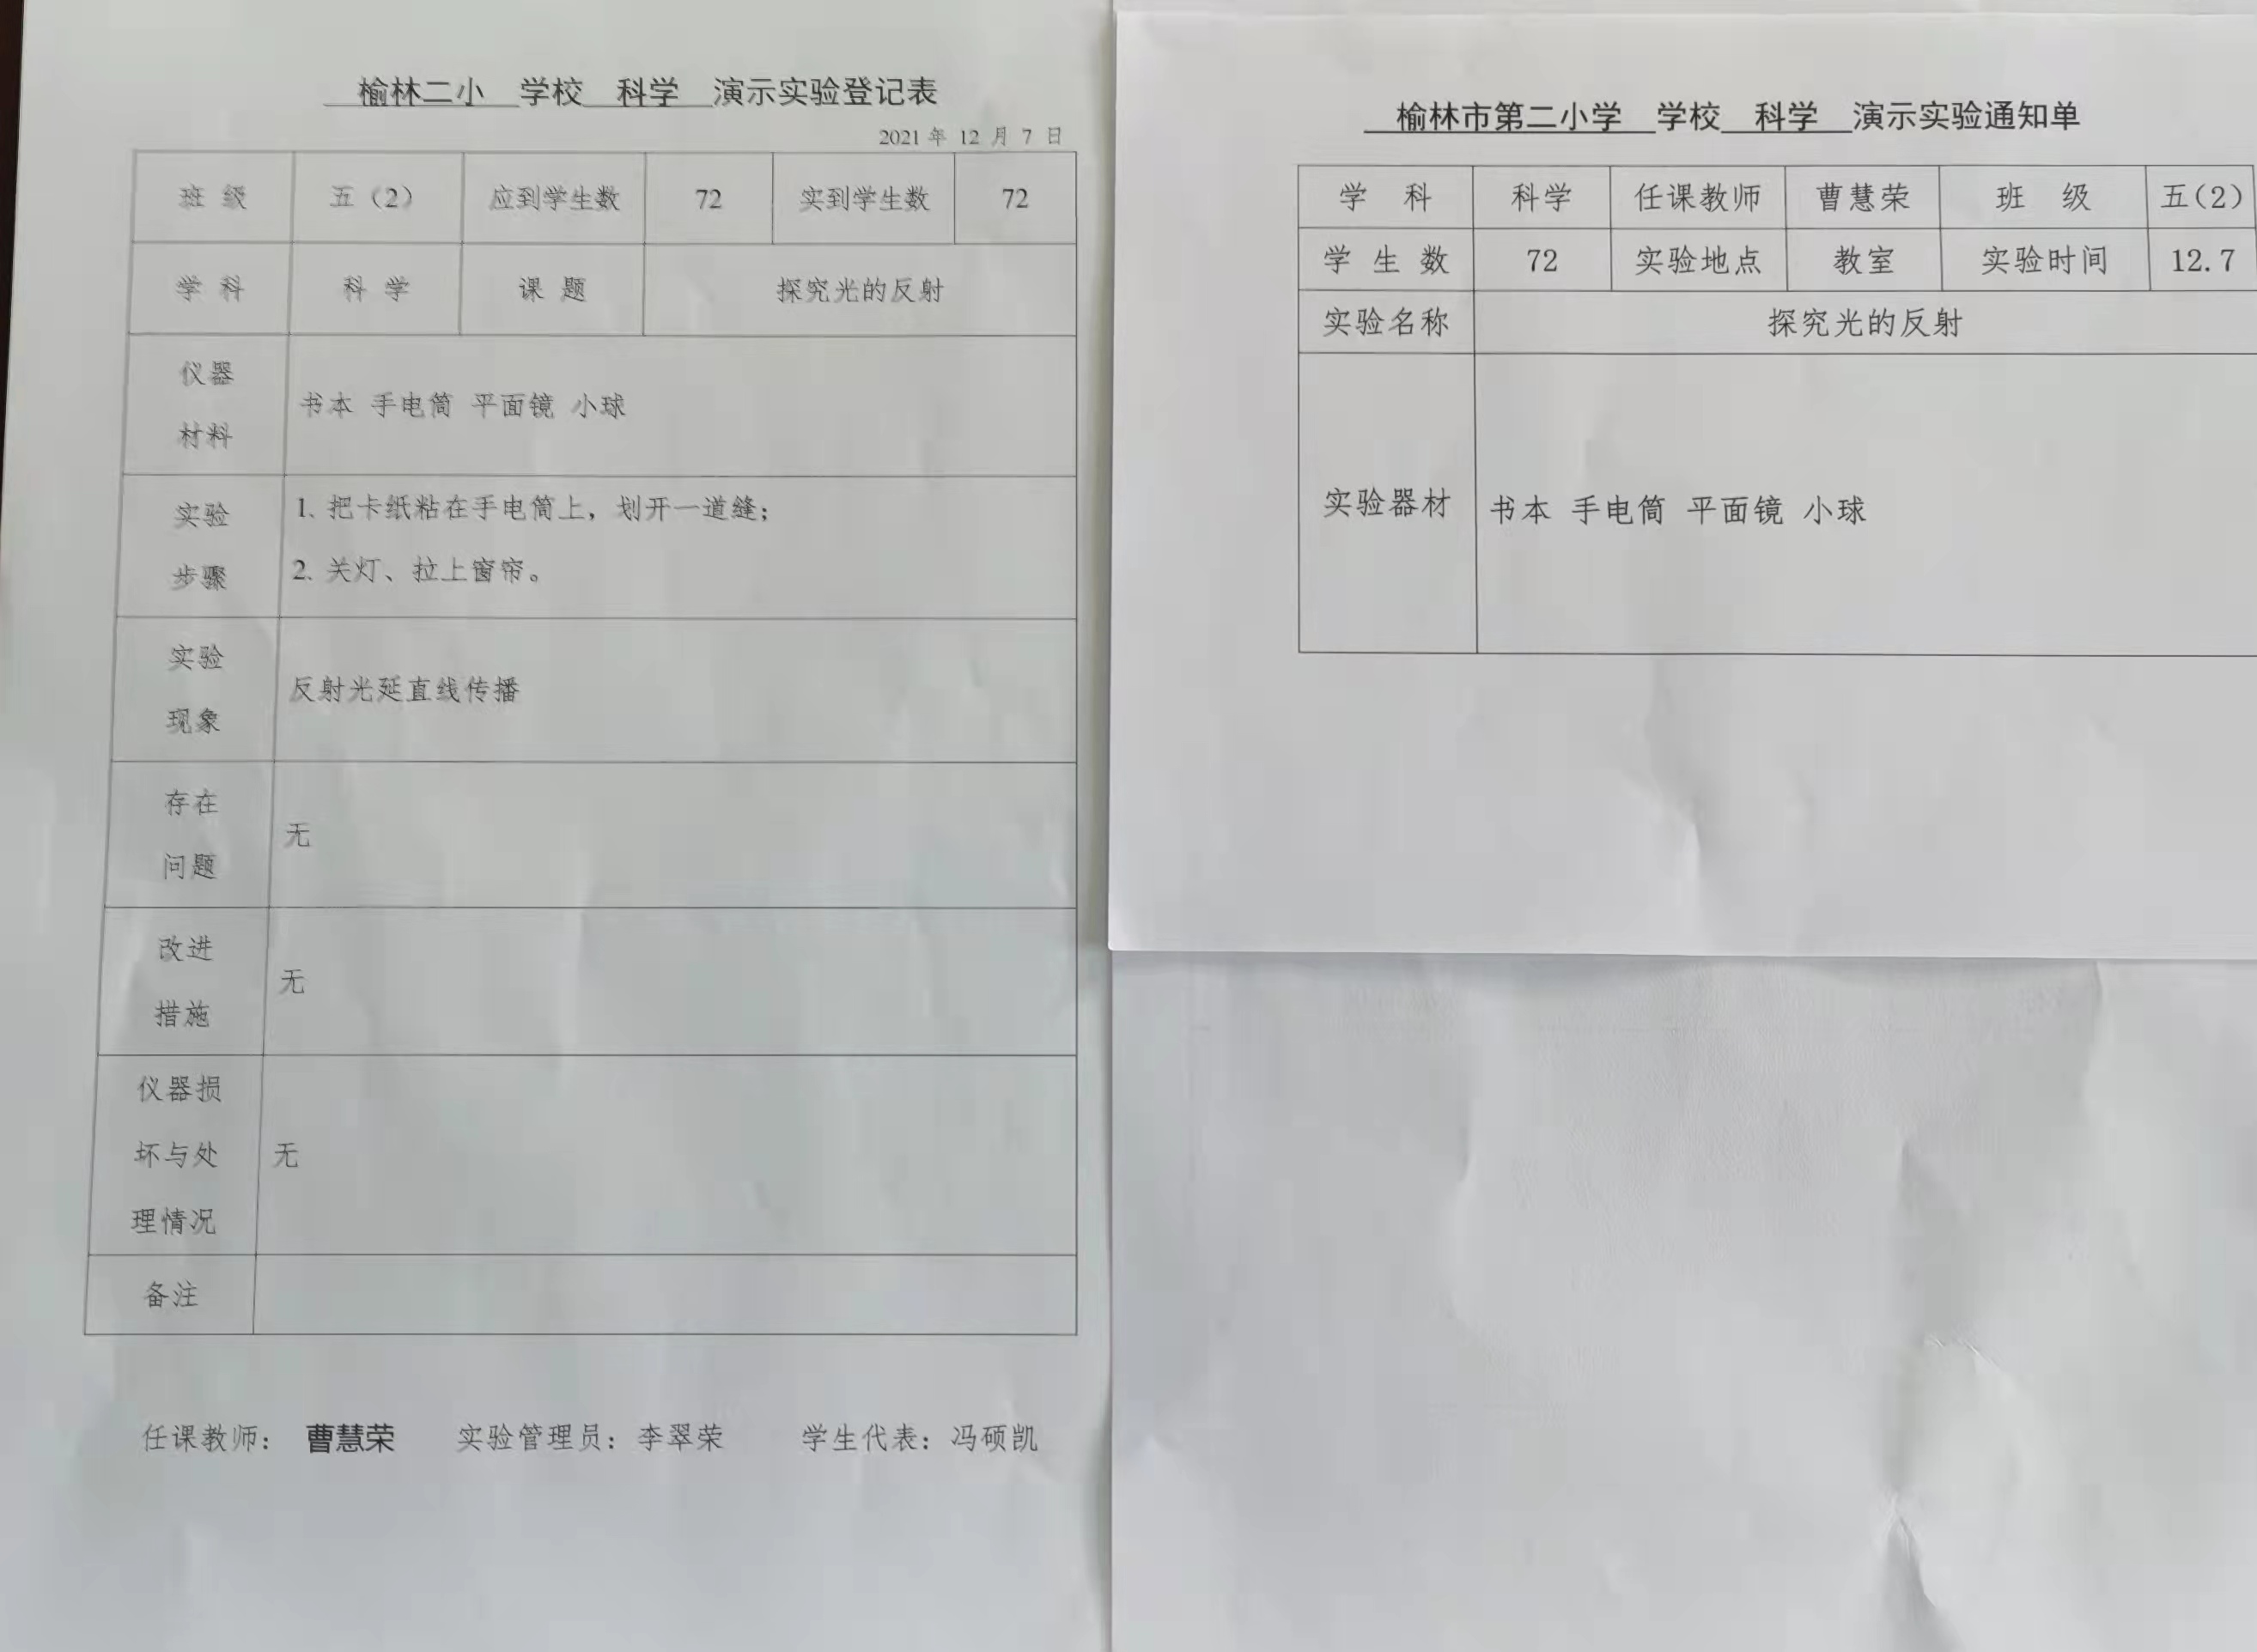 榆林二小 学校 科学 演示实验登记表
2021 年 12 月 7 日
班 级 五（2） 应到学生数 72 实到学生数 72
学 科 科 学 课 题 探究光的反射
仪器
材料
书本 手电筒 平面镜 小球
实验
步骤
1、把卡纸粘在手电筒上，划开一道缝；
2、关灯、拉上窗帘。
实验
现象
反射光延直线传播
存在
问题
无
改进
措施
无
仪器损
坏与处
理情况
无
备注
任课教师： 曹慧荣 实验管理员：李翠荣 学生代表：冯硕凯
榆林市第二小学 学校 科学 演示实验通知单
学 科 科学 任课教师 曹慧荣 班 级 五（2）
学 生 数 72 实验地点 教室 实验时间 12.7
实验名称 探究光的反射
实验器材 书本 手电筒 平面镜 小球